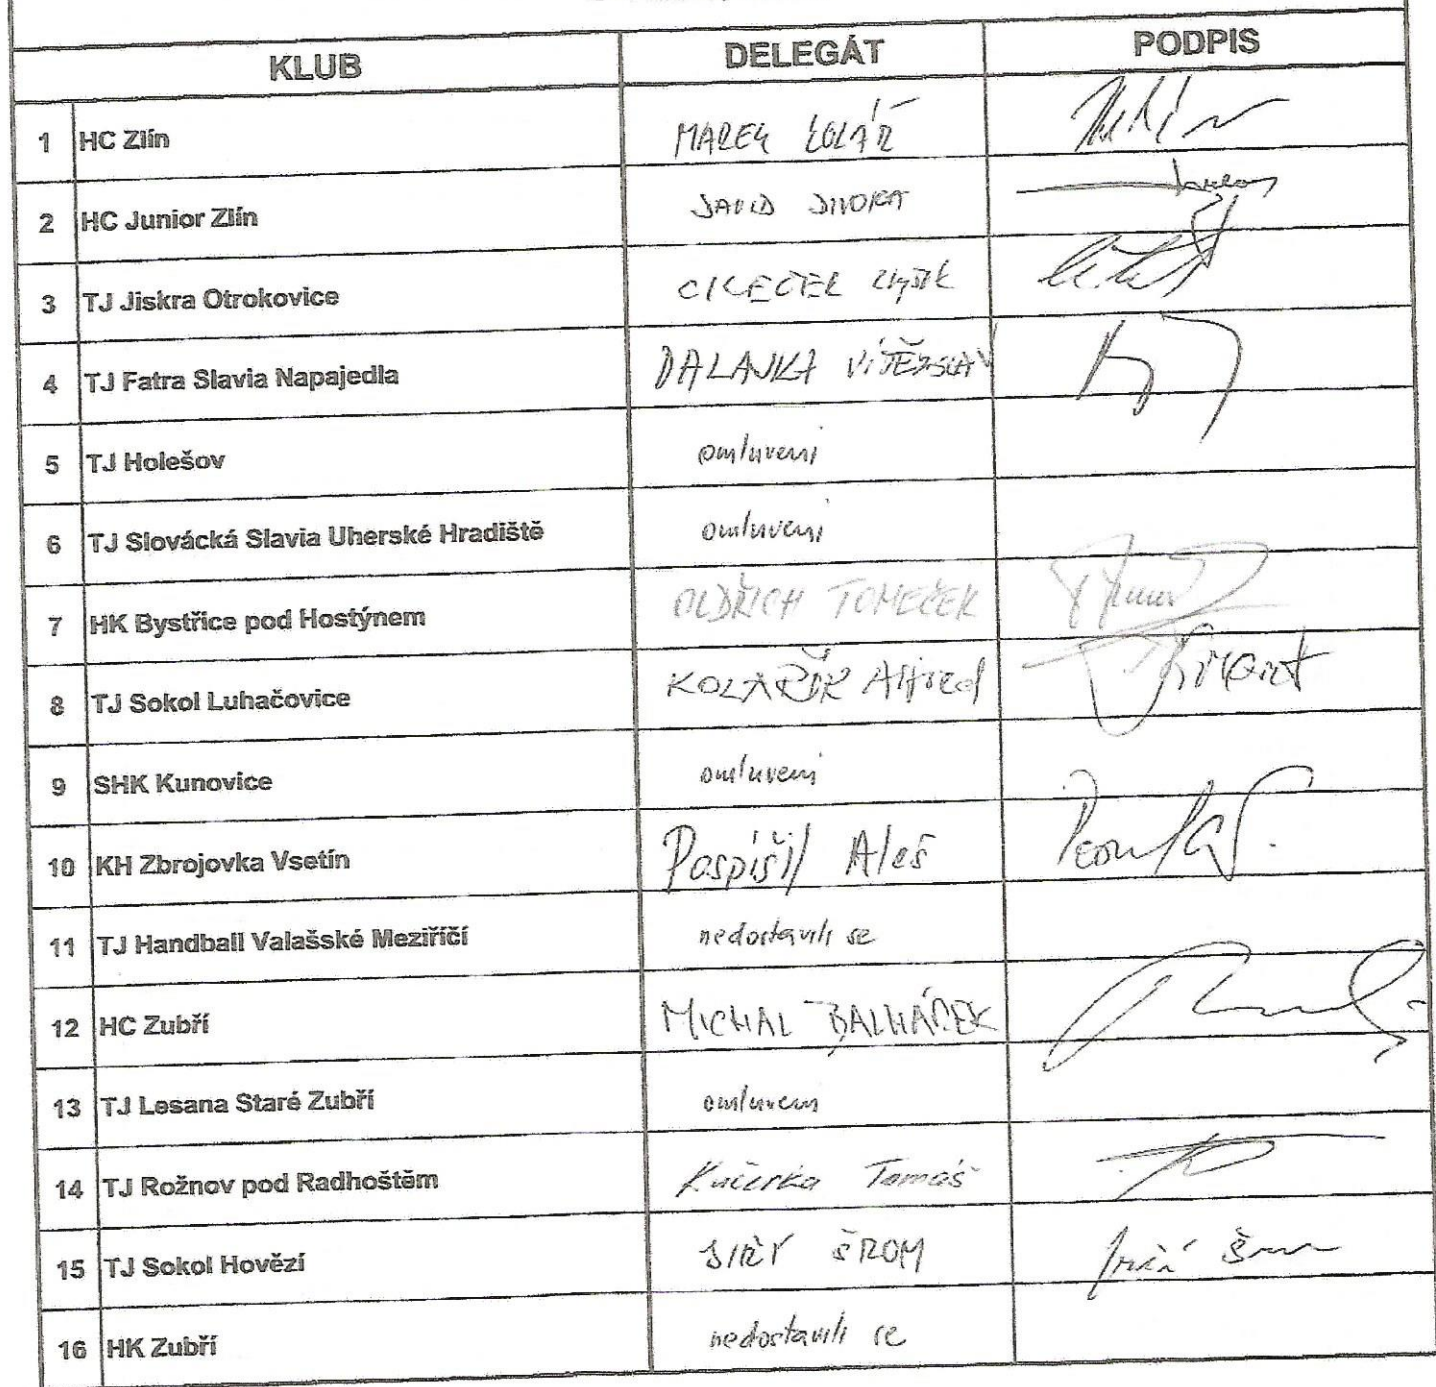 KLUB DELEGÁT PODPIS
1 HC Zlín MAREK KOLÁŘ
2 HC Junior Zlín DAVID
3 TJ Jiskra Otrokovice
4 TJ Fatra Slavia Napajedla VÍTĚZSLAV
5 TJ Holešov omluveni
6 TJ Slovácká Slavia Uherské Hradiště omluveni
7 HK Bystřice pod Hostýnem OLDŘICH TOMEČEK
8 TJ Sokol Luhačovice KOLAŘÍK Alfred
9 SHK Kunovice omluveni
10 KH Zbrojovka Vsetín Pospíšil Aleš
11 TJ Handball Valašské Meziříčí nedostavili se
12 HC Zubří MICHAL
13 TJ Lesana Staré Zubří omluveni
14 TJ Rožnov pod Radhoštěm Kučerka Tomáš
15 TJ Sokol Hovězí JIŘÍ ŠROM
16 HK Zubří nedostavili se